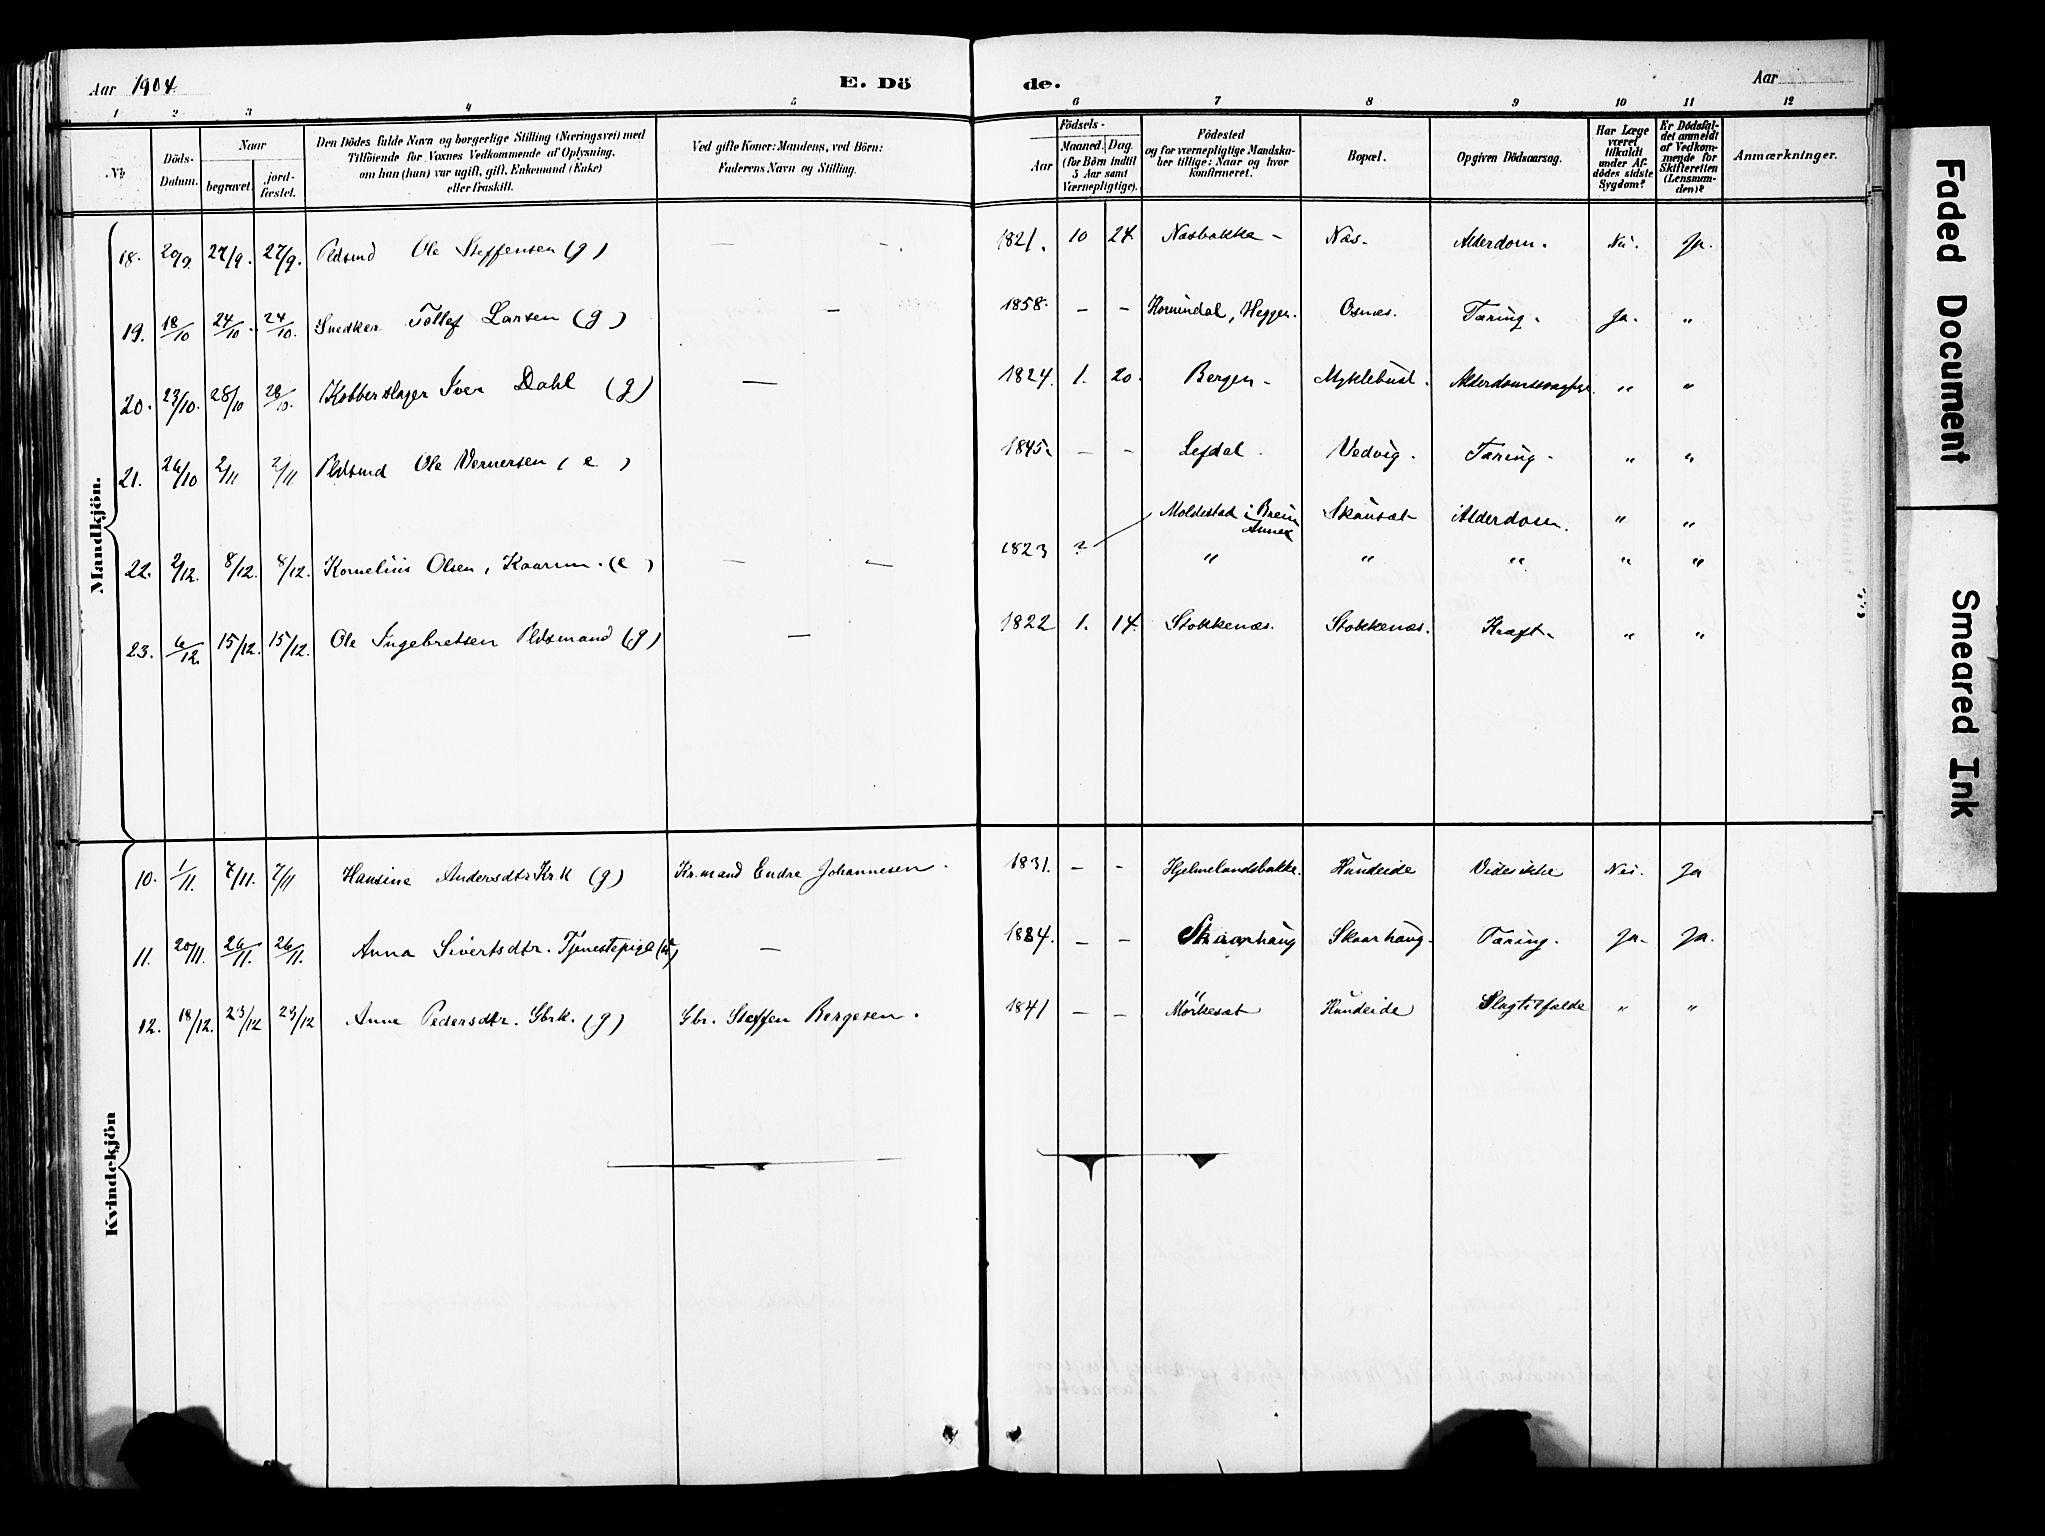 Aar 1904 E. Dö de. Aar
1 2 3 4 5 6 7 8 9 10 11 12
No Döds-Datum. Naar begravet. jord-fæstet. Den Dödes fulde Navn og borgerlige Stilling (Næringsvei) med Tilföiende for Voxnes Vedkommende af Oplysning, om han (hun) var ugift, gift, Enkemand (Enke) eller fraskilt. Ved gifte Koner: Mandens, ved Börn: Faderens Navn og Stilling. Födsels- Aar Maaned. Dag. (for Börn indtil 5 Aar samt Værnepligtige). Födested og for værnepligtige Mandska-ber tillige: Naar og hvor konfirmeret. Bopæl. Opgiven Dödsaarsag. Har Læge været tilkaldt under Af-dödes sidste Sygdom? Er Dödsfal-det anmeldt af Vedkom-mende for Skifteretten (Lensman-den)? Anmærkninger.
Mandkjön.
18. 20/9. 27/9. 27/9. Pldsmd Ole Steffensen (g) — — 1821. 10 24. Næsbakke - Næs. Alderdom. Nei. Ja.
19. 18/10 24/10. 24/10. Snedker Tollef Larsen (g) — 1858. — — Hornindal, Heggen. Osnæs. Tæring. Ja. "
20. 23/10. 28/10 28/10. Kobberslager Iver Dahl (g) — 1824. 1. 20. Bergen - Myklebust. " "
21. 26/10 2/11 2/11. Pldsmd Ole Vernersen (e) 1845. — — Lefdal. Vedvig. Tæring. " "
Moldestad i Breim Annex Skausæt Alderdom. " "
22. 2/12. 8/12. 8/12. Kornelius Olsen, Kaarm. (e) — — 1823 ? " " " " "
23. 6/12. 15/12. 15/12. Ole Ingebretsen Pldsmand (g) — 1822 1. 14. Stokkenæs. Stokkenæs. Kræft. " "
Kvindekjön
10. 1/11. 7/11. 7/11 Hansine Andersdtr Kr.k (g) Kr.mand Endre Johannesen. 1831. — — Hjelmelandsbakke. Hundeide Vides ikke Nei. Ja
11. 20/11. 26/11. 26/11. Anna Sivertsdtr. Tjenestepige — 1884. — — Skaarhaug Skaarhaug. Tæring. Ja. Ja.
12. 18/12. 23/12 23/12 Anne Pedersdtr. Gbrk. (g) Gbr. Steffen Bergesen. 1841 — — Mörkesæt Hundeide Slagtilfælde " "
Faded Document
Smeared Ink